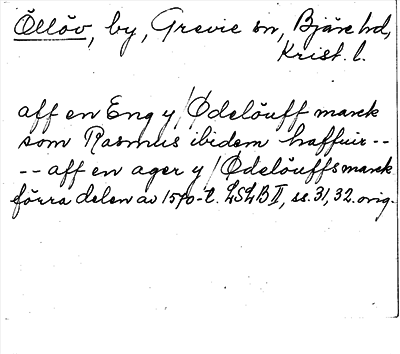 Öllöv, by, Grevie sn, Bjäre hd,
Krist. l.
aff en Eng y / Ødelöuff marck
som Rasmus ibidem haffuir --
-- aff en ager y / Ødelöuffs marck
förra delen av 1570-t. LSLB II, ss. 31, 32. orig.